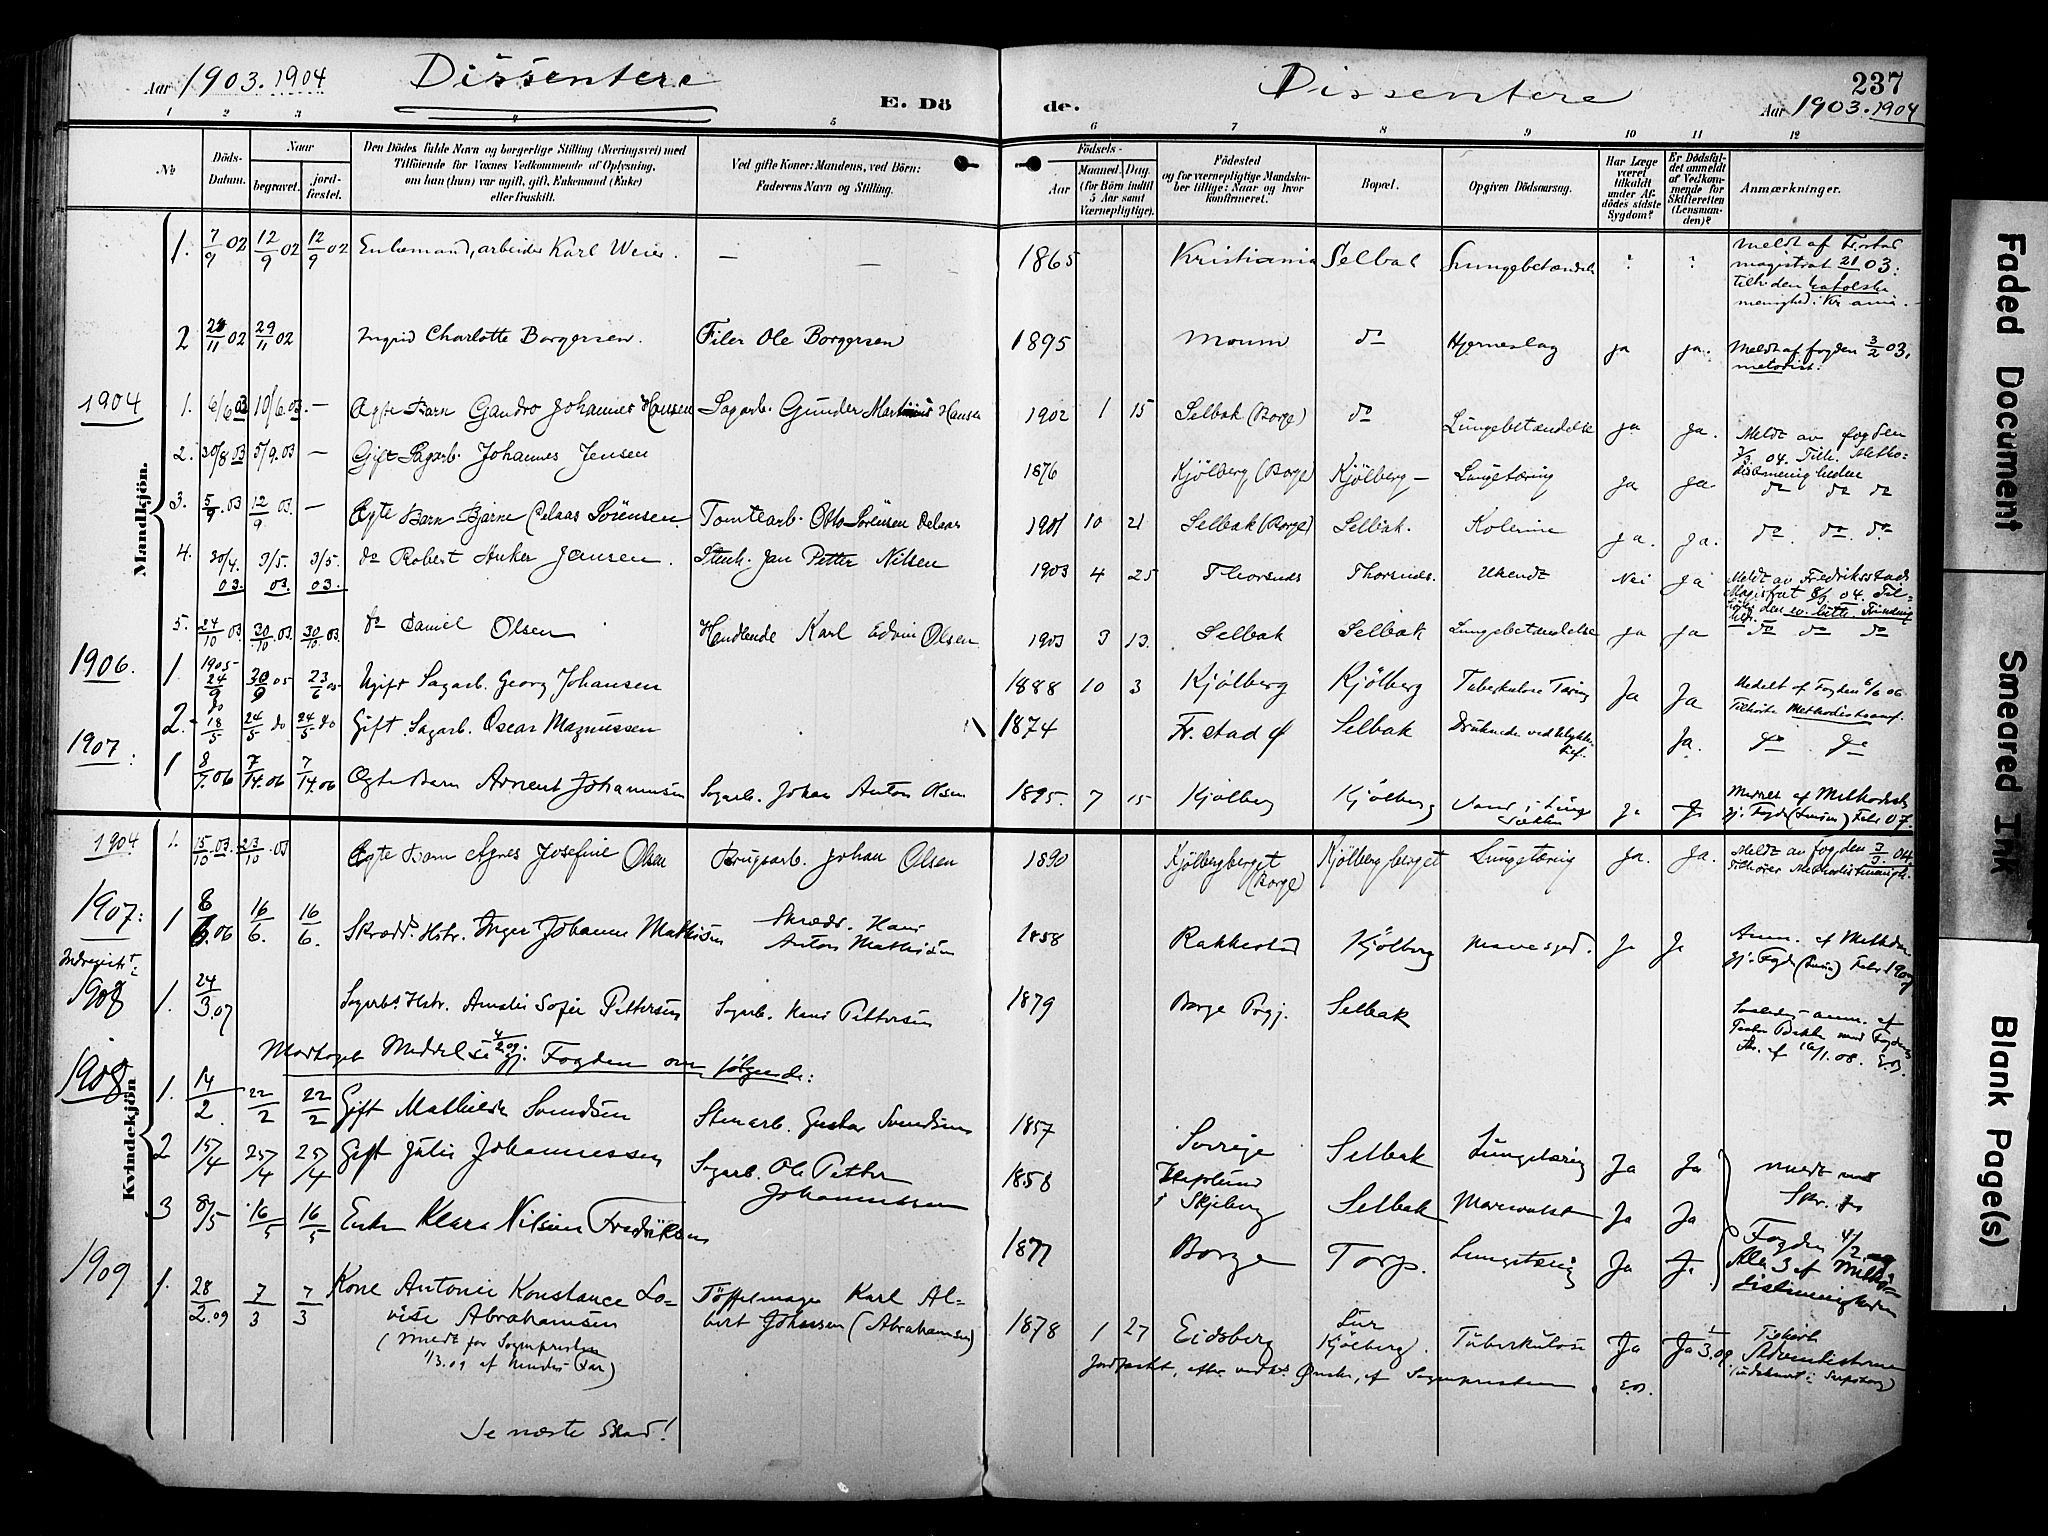 Aar 1903. 1904 Dissentere E. Dö
de. Dissentere 237
Aar 1903. 1904
1 2 3 4 5 6 7 8 9 10 11 12
No
Döds-Datum.
Naar
begravet.
jordfæstet.
Den Dödes fulde Navn og borgerlige Stilling (Næringsvei) med
Tilföiende for Voxnes Vedkommende af Oplysning,
om han (hun) var ugift, gift, Enkemand (Enke)
eller fraskilt.
Ved gifte Koner: Mandens, ved Börn:
Faderens Navn og Stilling.
Födsels-
Aar
Maaned. Dag.
(for Börn indtil
5 Aar samt
Værnepligtige).
Födested
og for værnepligtige Mandskaber tillige: Naar og hvor
konfirmeret.
Bopæl.
Opgiven Dödsaarsag.
Har Læge
været
tilkaldt
under Afdödes sidste
Sygdom?
Er Dödsfaldet anmeldt
af Vedkommende for
Skifteretten
(Lensmanden)?
Anmærkninger.
Mandkjön.
1. 7/9 02 12/9 02 12/9 02 Enkemand, arbeider Karl Weier. — — 1865 Kristiania Selbak Lungebetændelse ? ?
Meldt af Fr.stad
magistrat 21 03:
tilh. den katolske
menighed i Kr.ania.
2 11 02 29/11 02 Ingrid Charlotte Borgersen. Filer Ole Borgersen 1895 Moum do Hjerneslag ja ja. Meldt af fogden 3/2 03.
metodist.
1904
1. 6/6 03 10/6.03. — Ægte Barn Johannes Hansen Sagarb. Gunder Hansen 1902 1 15 Selbak (Borge) do Lungebetændelse ja Ja. Meldt av fogden
3/3 04. Tilh. Metodistmenigheden
2. 30/8 03 5/9.03 — Gift Sagarb. Johannes Jensen 1876 Kjölberg (Borge) Kjölberg — Lungetæring Ja Ja do do do
3. 5/9 03 12/9 03. — Ægte Barn Bjarne Sörensen. Tomtearb. Otto Sörensen 1901 10 21 Selbak (Borge) Selbak. Kolerine Ja. Ja. do. do. do
4. 30/4. 03. 3/5. 03. 3/5. 03. do Robert Anker Jansen. Jan Petter Nilsen 1903 4 25 Thorsnes Thorsnes. Ukendt Nei Ja Meldt av Fredriksstads
Magistrat 04. Tilhörte den ev. luth. Frimenighed.
5. 24/10 03 30/10 03. 30/10 03. do Daniel Olsen Handlende Karl Edvin Olsen. 1903 3 13. Selbak Selbak Lungebetændelse ja ja do do do
1906.
1 1905 24/9 30/9 05 23/6 05 Ugift Sagarb. Georg Johansen 1888 10 3 Kjölberg Kjölberg Tuberkulose Tæring Ja Ja Medelt af Fogden 6/2 06
Tilhörte Methodistsamf.
2. do 18/5 24/5 do 24/5 do Gift Sagarb. Oscar Magnussen 1874 Fr.stad Selbak Druknede ved Ulykkestilf. Ja. do do
1907:
1 8/7.06 7/14.06 7/14.06 Ægte Barn Johannesen Sagarb. Johan Anton Olsen 1895. 7 15 Kjölberg Kjölberg Ja Ja af Methodist
Kvindekjön
1904 1. 15/10 03. 23/10 .03 Ægte Barn Agnes Josefine Olsen Brugsarb. Johan Olsen 1890 Kjölbergberget
(Borge) Kjölbergberget Lungetæring ja. Ja. Meldt av fogden 3/3. 04.
Tilhörer Methodistmenigh.
1907:
1 8/6.06 16/6. 16/6. Skrædd. Hstr. Inger Johanne Mathisen Skrædr. Hans
Anton Mathisen 1858 Rakkestad Kjölberg Mavesyged. Ja Ja Anm. af Method.
gj. Fogd. Febr 1907
Indregistr.
1908
1. 24/3.07 Sagarbs. Hstr. Amalie Sofie Pettersen Sagarb. Hans Pettersen 1879 Borge Prgj. Selbak
16/1.08. E.B.
Modtaget Meddelelse 4/2 09. gj. Fogden om følgende:
1908
1. 14/2. 22/2 22/2 Gift Mathilde Svendsen Stenarb. Gustav Svendsen 1857 Sverige Selbak Lungetæring Ja Ja
2 15/4 25/4 25/4 Gift Julie Johannessen Sagarb. Ole Petter
Johannessen 1858 Hafslund
i Skjeberg Selbak Ja Ja
3 8/5 16/5 16/5 Enke Klara Nilsine Fredriksen 1877 Borge Torp. Lungetæring Ja Ja
Fogden 4/2.09
Alle 3 af Methodistmenigheden
1909
1. 28/2.09 7/3 7/3 Kone Antonie Konstance Lovise Abrahamsen
(meldt for Sognepresten
1/3.09 af hendes Far)
Töffelmager Karl Albert Johansen (Abrahamsen) 1878 1 27 Eidsberg Lur
Kjölberg. Tuberkulose Ja Ja 1/3.09. Tilhörte
Adventisterne
Jordfæstet, efter Ønske, af Sognepresten. E.B.
Se næste Blad!
Faded Document
Smeared Ink
Blank Page(s)